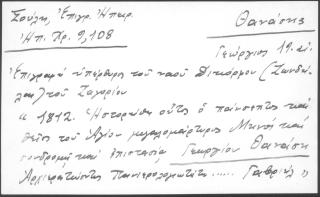 Σούλη, Ἐπιγρ. Ἠπειρ.
Ἠπ. Χρ. 9, 108
Θανάσης
Γεώργιος 19. αἰ.
Ἐπιγραφὴ ὑπέρθυρος τοῦ ναοῦ
τοῦ Ζαγορίου
« 1812. Ἱστορήθη οὗτος ὁ πάνσεπτος καὶ
θεῖος τοῦ Ἁγίου μεγαλομάρτυρος Μηνᾶ καὶ
συνδρομῇ καὶ ἐπιστασίᾳ Γεωργίου Θανάση
Ἀρχιερατεύοντος Πανιερολογιωτάτου ...... Γαβριὴλ »